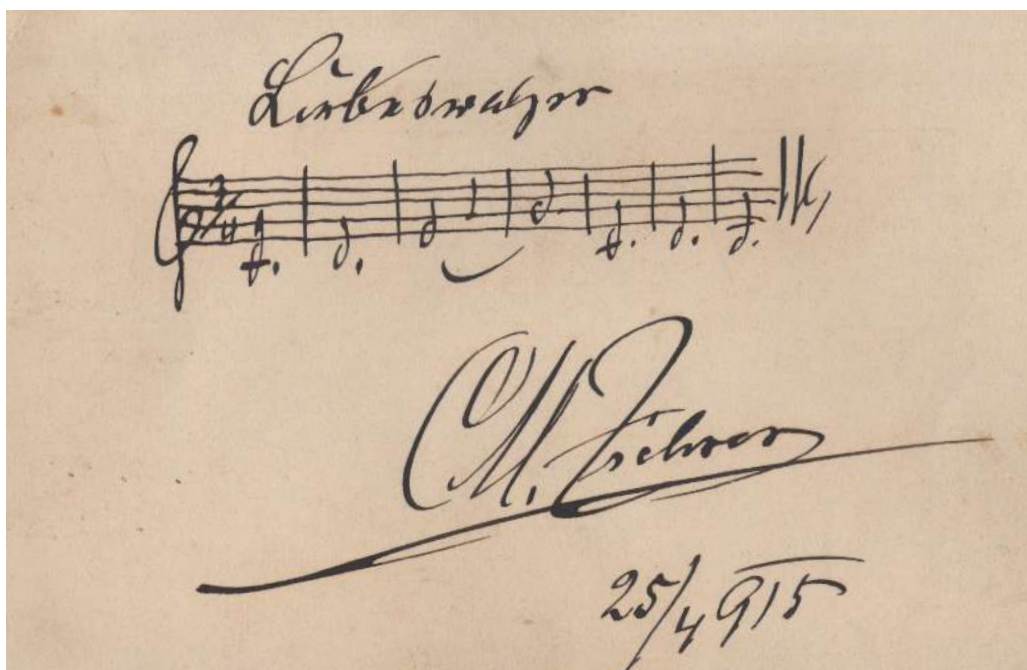 Liebeswalzer
CM. Ziehrer
25/4 915